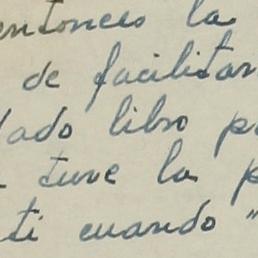 entonces la
de facilitar
dado libro p
tuve la p
ti cuando "